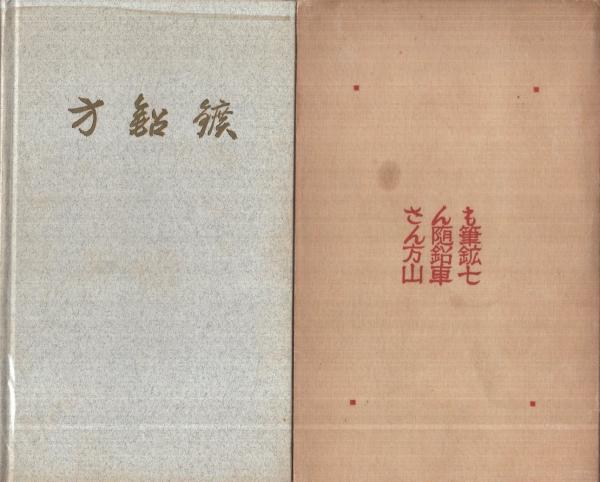 方鉛鑛
さんも
ん随筆
方鉛鉱
山車七